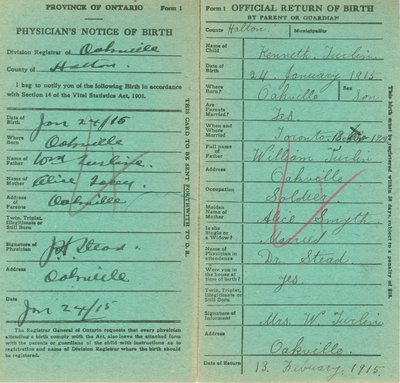 PROVINCE OF ONTARIO Form 1
PHYSICIAN'S NOTICE OF BIRTH
Division Registrar of Oakville
County of Halton.
I beg to notify you of the following Birth in accordance
with Section 14 of the Vital Statistics Act, 1908.
Date of Birth Jan 24/15
Where Born Oakville
Name of Father Wm
Name of Mother Alice
Address of Parents Oakville
Twin, Triplet, Illegitimate or Still Born
Signature of Physician Stead
Address Oakville
Date Jan 24/15
The Registrar General of Ontario requests that every physician
attending a birth comply with the Act, also leave the attached form
with the parents or guardians of the child with instructions as to
registration and name of Division Registrar where the birth should
be registered.
THIS CARD TO BE SENT FORTHWITH TO D.R.
Form 1 OFFICIAL RETURN OF BIRTH
BY PARENT OR GUARDIAN
County Halton. Municipality
Name of Child Kenneth Turlin
Date of Birth 24 January 1915
Where Born? Oakville Sex Son
Are Parents Married? Yes
When and Where Married Toronto
Full name of Father William Turlin
Address Oakville
Occupation Soldier
Maiden Name of Mother Alice Smyth
Is she Single or a Widow? Married
Name of Physician in attendance Dr. Stead
Were you in the house at time of birth? Yes
Twin, Triplet, Illegitimate or Still Born
Signature of Informant Mrs. W. Turlin
Address Oakville.
Date of Return 13. February, 1915.
This birth must be registered within 30 days, subject to a penalty of